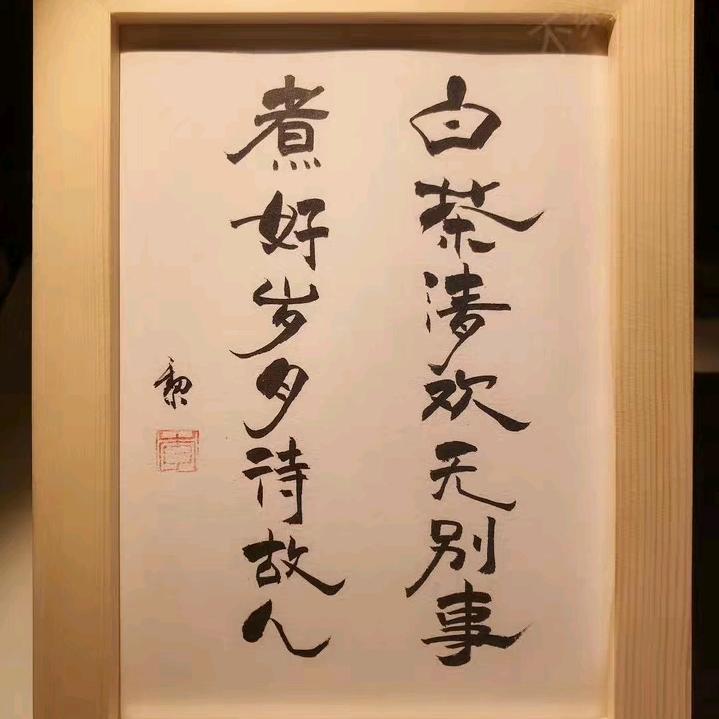 白茶清欢无别事
煮好岁月待故人
黎